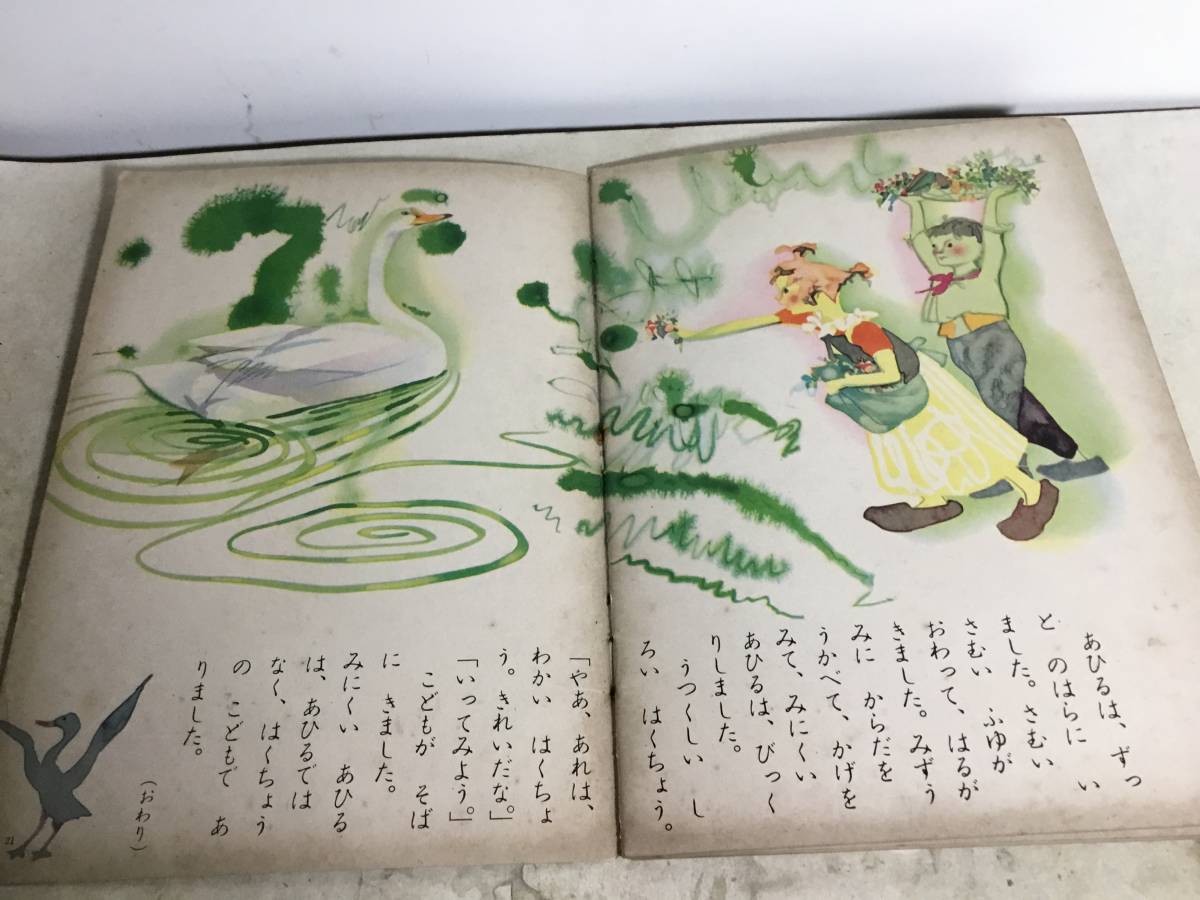 あひるは、ずっ
と のはらに い
ました。さむい
さむい ふゆが
おわって、はるが
きました。みずう
みに からだを
うかべて、かげを
みて、みにくい
あひるは、びっく
りしました。
うつくしい し
ろい はくちょう。
「やあ、あれは、
わかい はくちょ
う。きれいだな。」
「いってみよう。」
こどもが そば
に きました。
みにくい あひる
は、あひるでは
なく、はくちょう
の こどもで あ
りました。
(おわり)
21